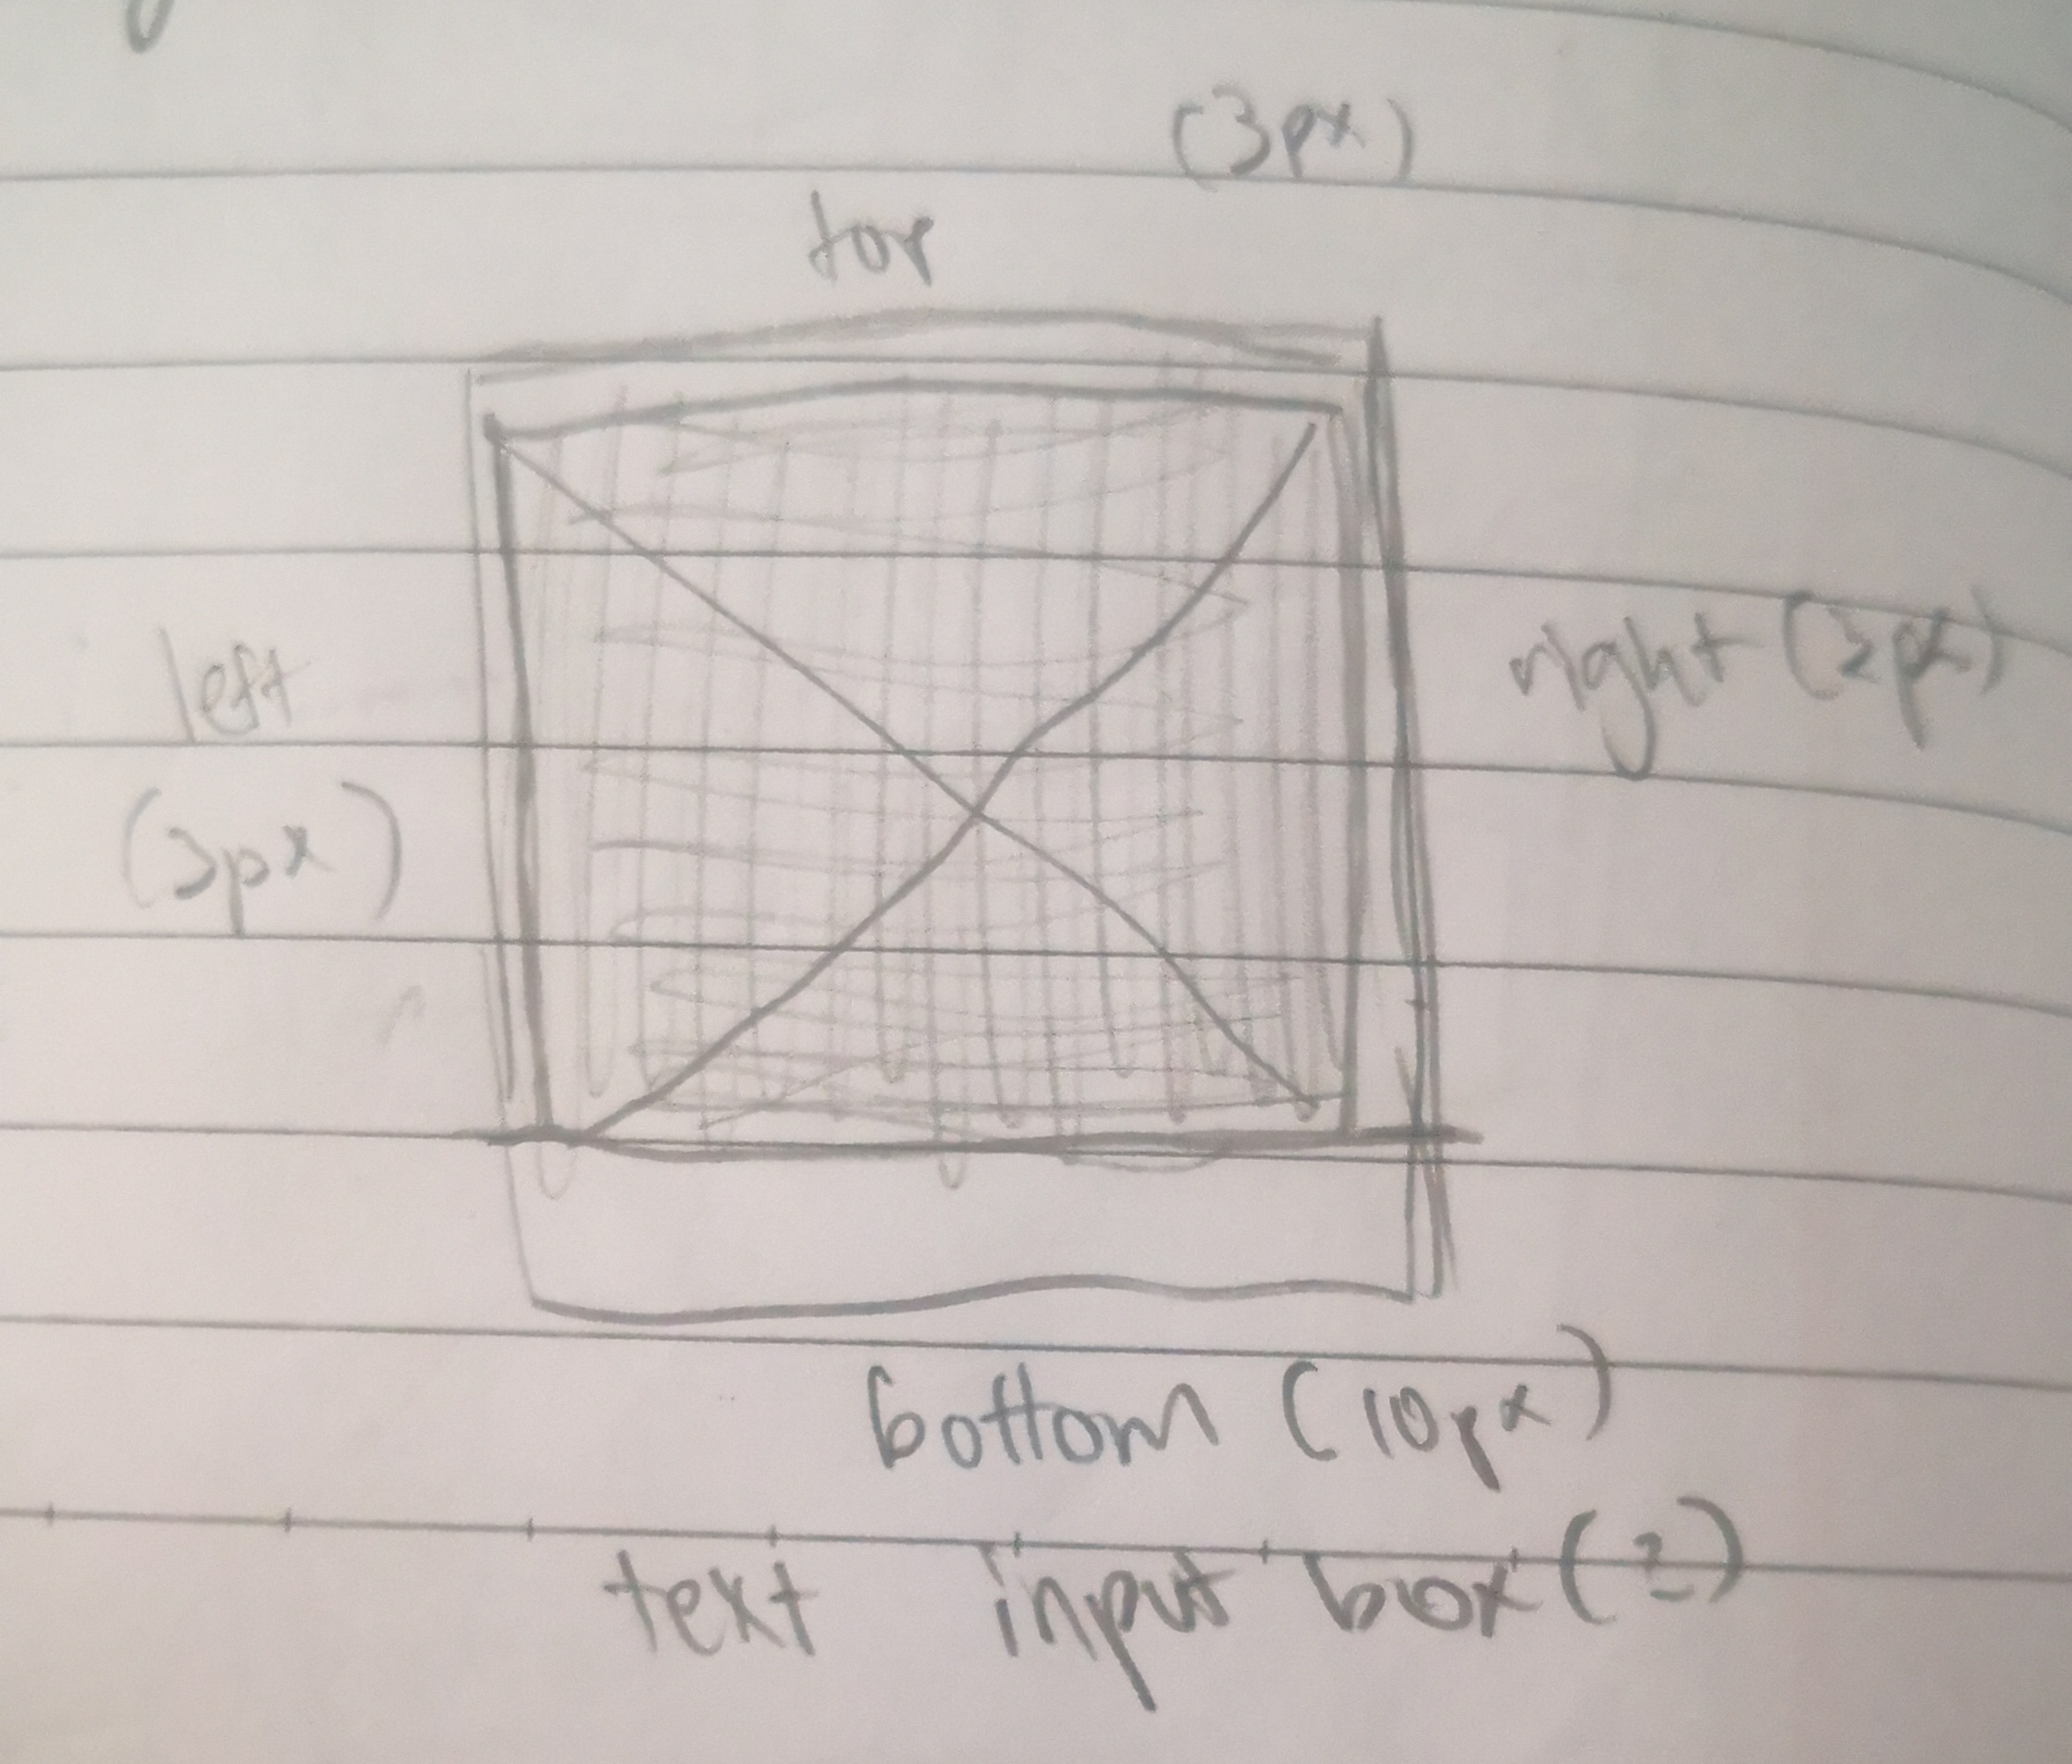 (3px)
top
left
right (3px)
(3px)
bottom (10px)
text input box (2)